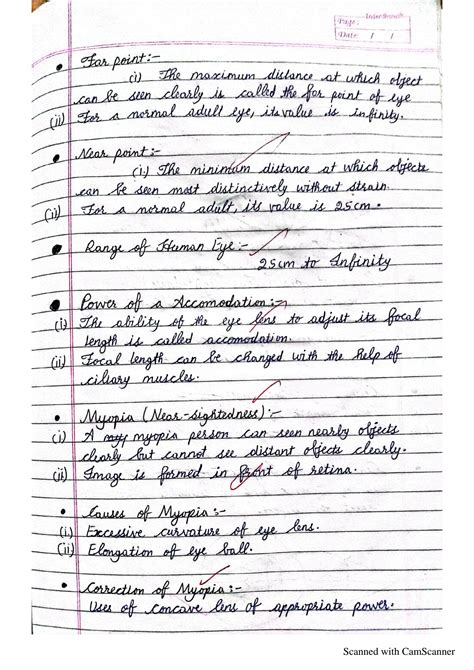 Page:
Date: / /
• Far point:-
(i) The maximum distance at which object
can be seen clearly is called the far point of eye
(ii) For a normal adult eye, its value is infinity.
• Near point:-
(i) The minimum distance at which objects
can be seen most distinctively without strain.
(ii) For a normal adult, its value is 25cm.
• Range of Human Eye:-
25cm to Infinity
• Power of a Accomodation:-
(i) The ability of the eye lens to adjust its focal
length is called accomodation.
(ii) Focal length can be changed with the help of
ciliary muscles.
• Myopia (Near-sightedness):-
(i) A myopia person can seen nearly objects
clearly but cannot see distant objects clearly.
(ii) Image is formed in front of retina.
• Causes of Myopia:-
(i) Excessive curvature of eye lens.
(ii) Elongation of eye ball.
• Correction of Myopia:-
Uses of concave lens of appropriate power.
Scanned with CamScanner